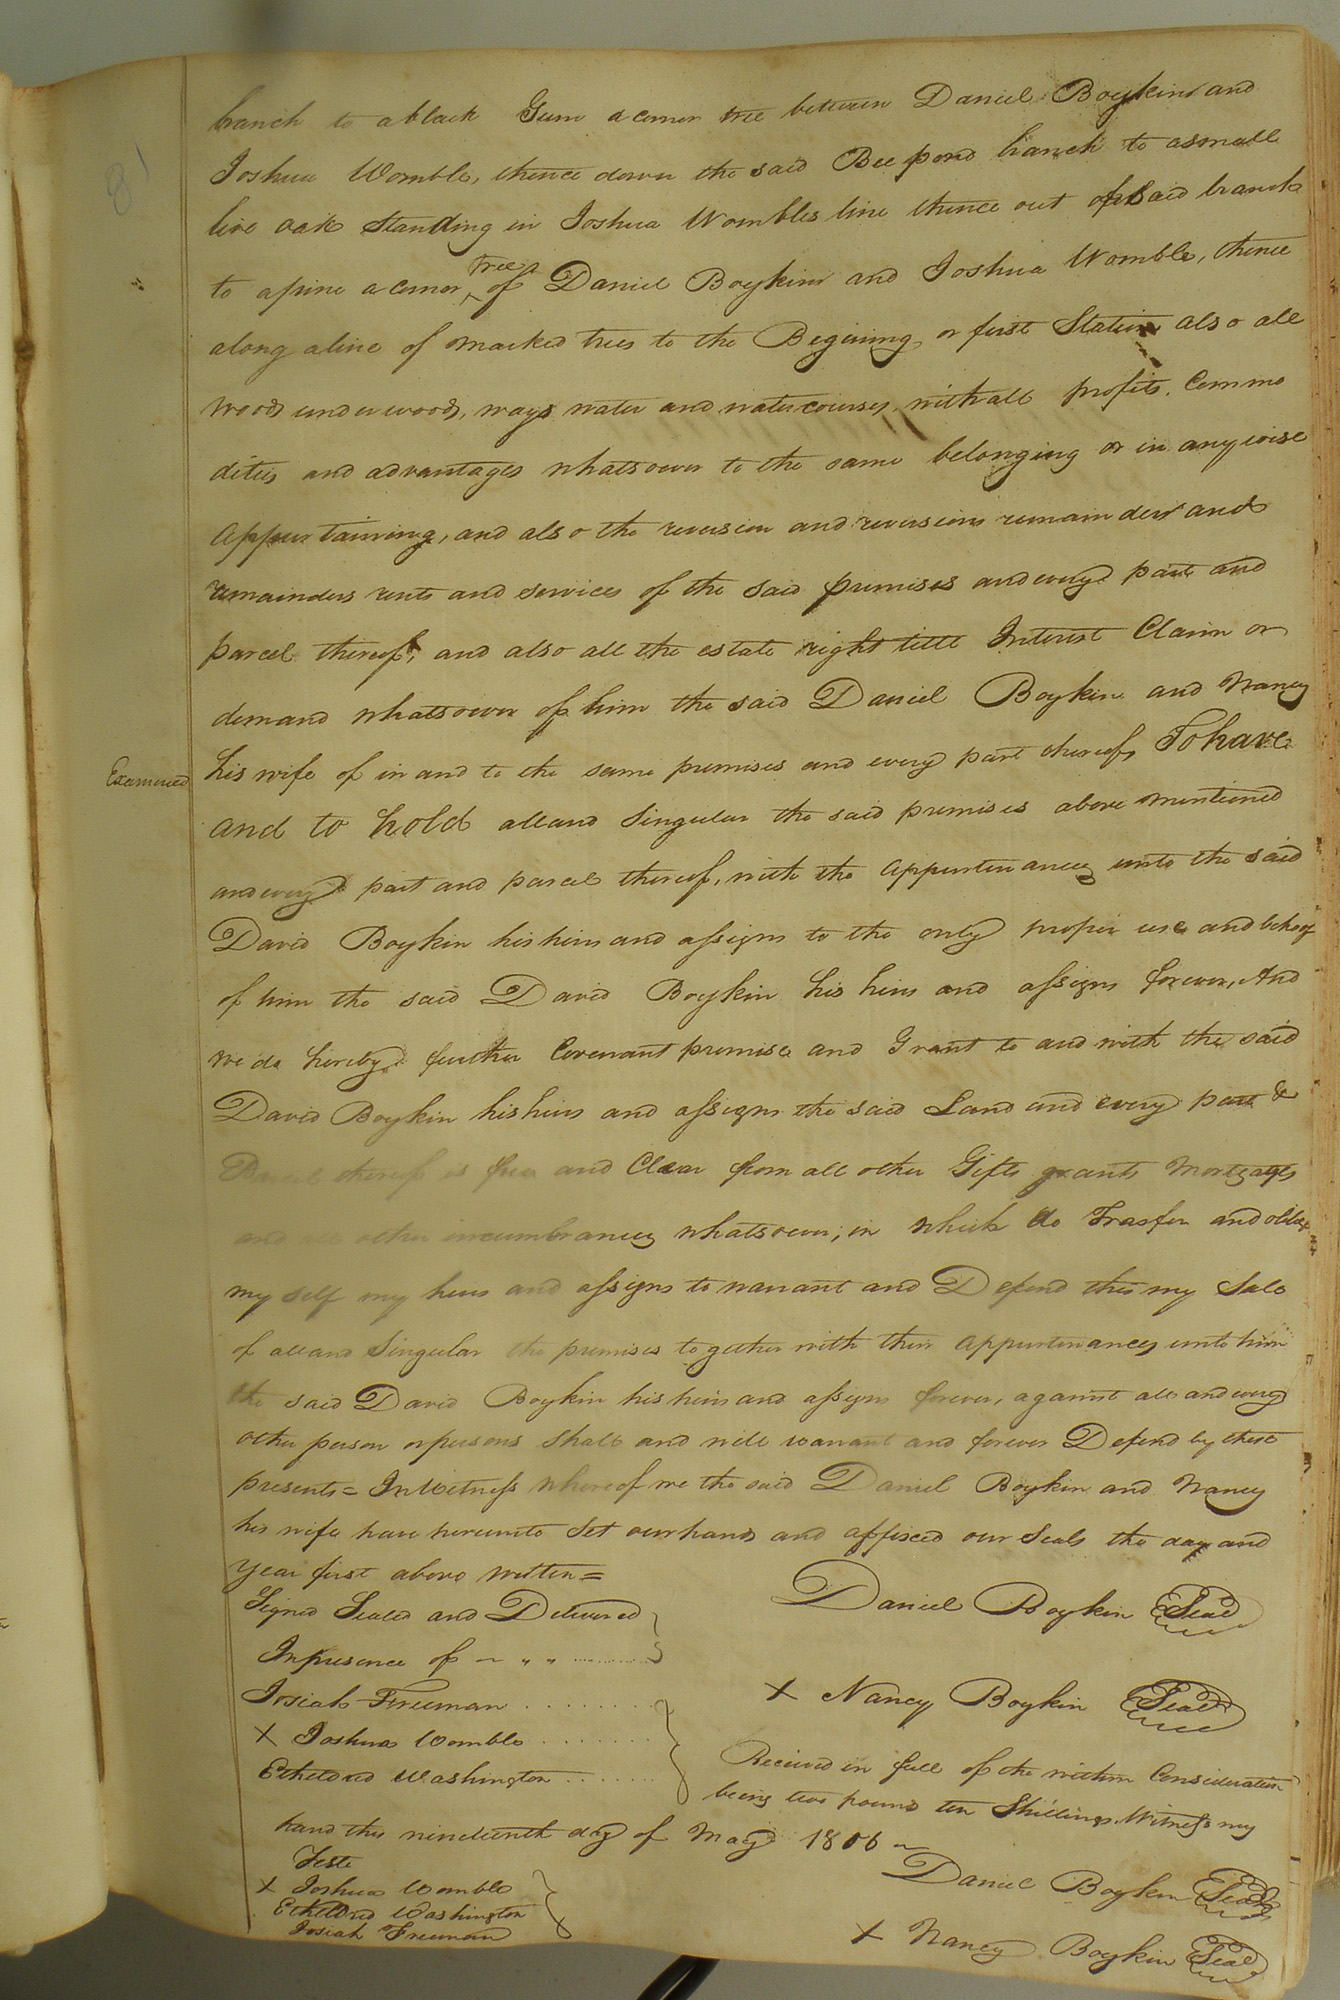 81
branch to a black Gum a corner tree between Daniel Boykin and
Joshua Womble, thence down the said Bee pond branch to a small
live oak Standing in Joshua Wombles line thence out of said branch
to a pine a corner tree of Daniel Boykin and Joshua Womble, thence
along a line of marked trees to the Begining or first Station also all
woods underwoods, ways water and watercourses, with all profits, Commo
dities and advantages whatsoever to the same belonging or in any wise
appurtaining, and also the reversion and reversions remainder and
remainders rents and services of the said premises and every part and
parcel thereof, and also all the estate right title Interest Claim or
demand whatsoever of him the said Daniel Boykin and Nancy
Examined
his wife of in and to the same premises and every part thereof, To have
and to hold all and Singular the said premises above mentioned
and every part and parcel thereof, with the appurtenances unto the said
David Boykin his heirs and assigns to the only proper use and behoof
of him the said David Boykin his heirs and assigns forever, And
we do hereby further Covenant promise and Grant to and with the said
David Boykin his heirs and assigns the said Land and every part &
Parcel thereof is free and Clear from all other Gifts grants Mortgages
and all other incumbrances whatsoever; in which do Trasfer and oblige
my self my heirs and assigns to warrant and Defend this my Sale
of all and Singular the premises together with their appurtenances unto him
the said David Boykin his heirs and assigns forever, against all and every
other person or persons Shall and will warrant and forever Defend by these
presents = In Witness whereof we the said Daniel Boykin and Nancy
his wife have hereunto Set our hands and affixed our Seals the day and
year first above written =
Signed Sealed and Delivered
Daniel Boykin Seal
In presence of
Josiah Freeman
X Nancy Boykin Seal
X Joshua Womble
Etheldred Washington
Received in full of the within Consideration
being two pound ten Shillings. Witness my
hand this nineteenth day of May 1806
Teste
Daniel Boykin Seal
X Joshua Womble
Etheldred Washington
X Nancy Boykin Seal
Josiah Freeman